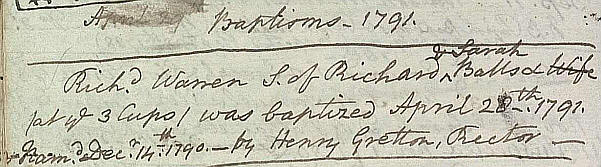 Baptisms - 1791.
& Sarah
Rich.d Warren S. of Richard ^ Balls & Wife
(at ye 3 Cups) was baptized April 28th - 1791.
& Nam.d Dec.r 14th 1790. - by Henry Gretton, Rector -